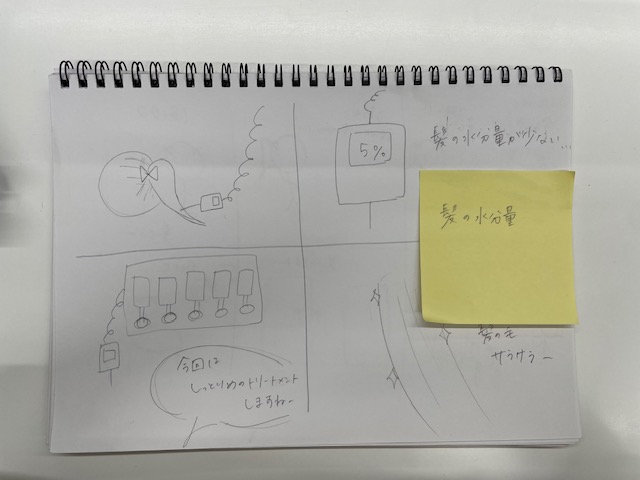 5%
髪の水分量が少ない...
髪の水分量
今回は
しっとりめのトリートメント
しますねー
髪の毛
サラサラ〜